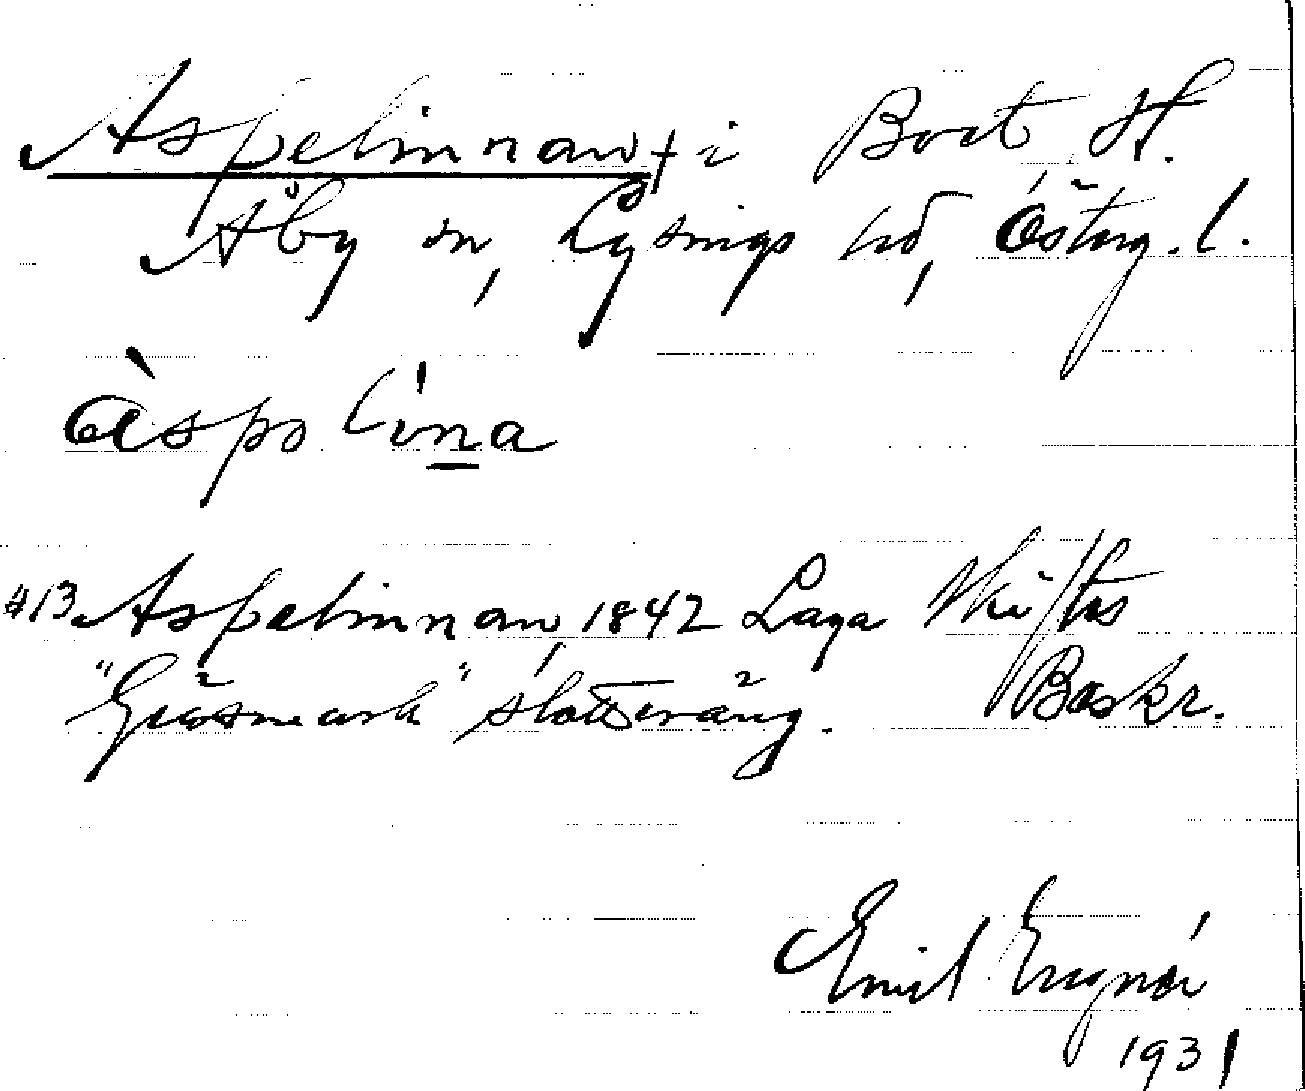 Aspelinnan, † i Bort St.
Åby sn, Lysings hd, Österg. l.
àspo lína
413 Aspelinnan, 1842 Laga skiftes
"Gräsmark" slåtteräng. Beskr.
Emil
1931